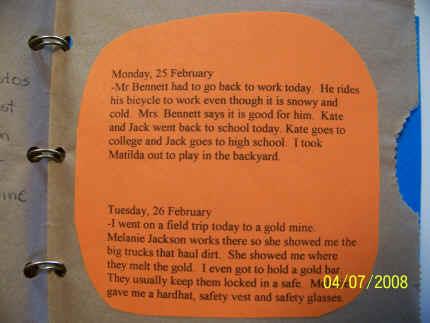 otos
ine
Monday, 25 February
-Mr Bennett had to go back to work today. He rides
his bicycle to work even though it is snowy and
cold. Mrs. Bennett says it is good for him. Kate
and Jack went back to school today. Kate goes to
college and Jack goes to high school. I took
Matilda out to play in the backyard.
Tuesday, 26 February
-I went on a field trip today to a gold mine.
Melanie Jackson works there so she showed me the
big trucks that haul dirt. She showed me where
they melt the gold. I even got to hold a gold bar
They usually keep them locked in a safe.
gave me a hardhat, safety vest and safety glasses.
04/07/2008